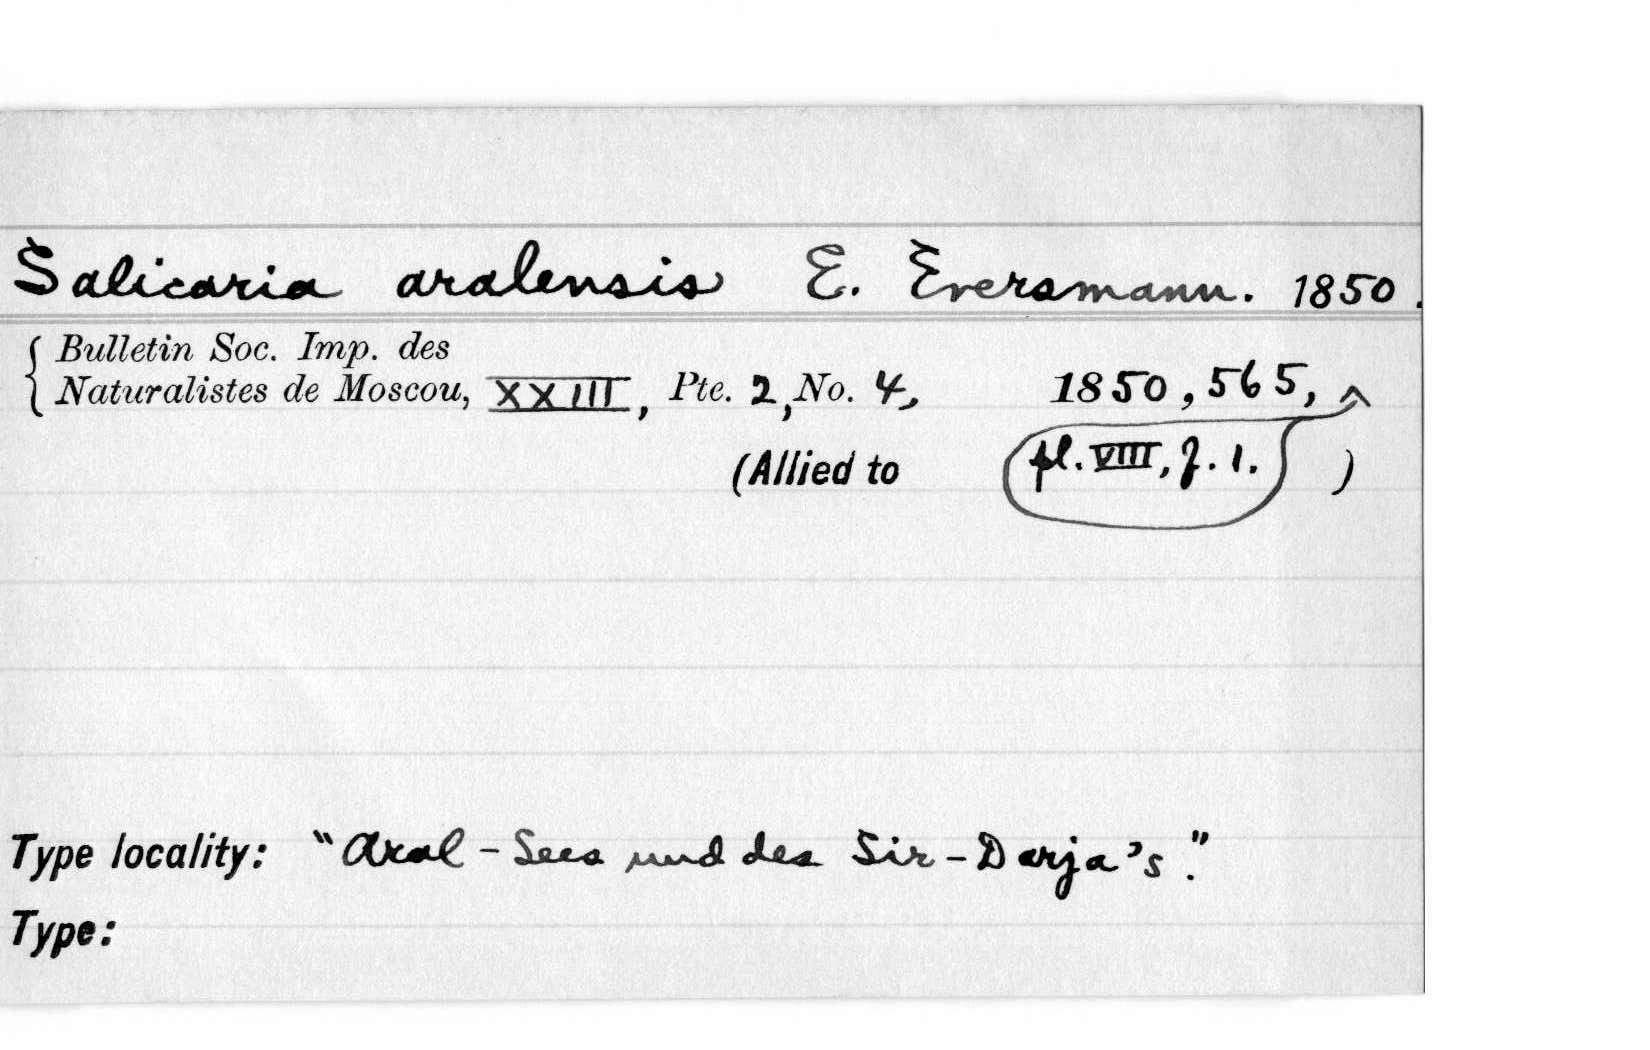 Salicaria aralensis E. Eversmann. 1850.
Bulletin Soc. Imp. des
Naturalistes de Moscou, XXIII, Pte. 2, No. 4, 1850, 565, ^
(Allied to pl. VIII, f. 1. )
Type locality: "Aral-Sees und des Sir-Darja's."
Type: